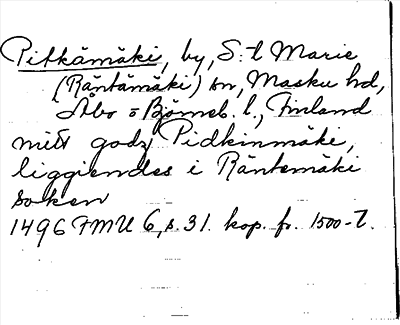 Pitkämäki, by, S:t Marie
(Räntämäki) sn, Masku hd,
Åbo o Björneb. l., Finland
mitt godz Pidkinmäki,
liggiendes i Räntemäki
soken
1496 FMU 6, s. 31. kop. fr. 1500-t.